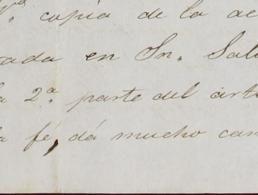 copia de la ac
rada en Sn. Salv
la 2.ª parte del artí
la fé, dá mucho cam